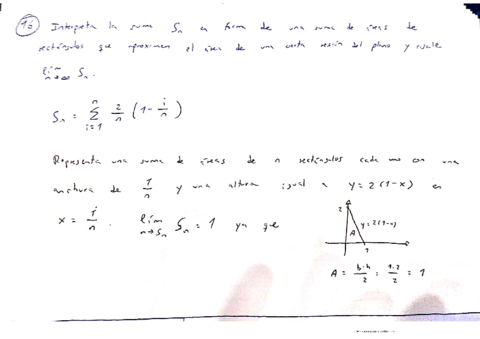 16 Interpreta la suma Sn en forma de una suma de áreas de
rectángulos que aproximen el área de una cierta región del plano y calcule
lim n→∞ Sn.
Sn = ∑ i=1 n 2/n (1 - i/n)
Representa una suma de áreas de n rectángulos cada uno con una
anchura de 1/n y una altura igual a y=2(1-x) en
x = i/n. lim n→ Sn = 1 ya que
2
y=2(1-x)
A
1
A = b·h/2 = 1·2/2 = 1